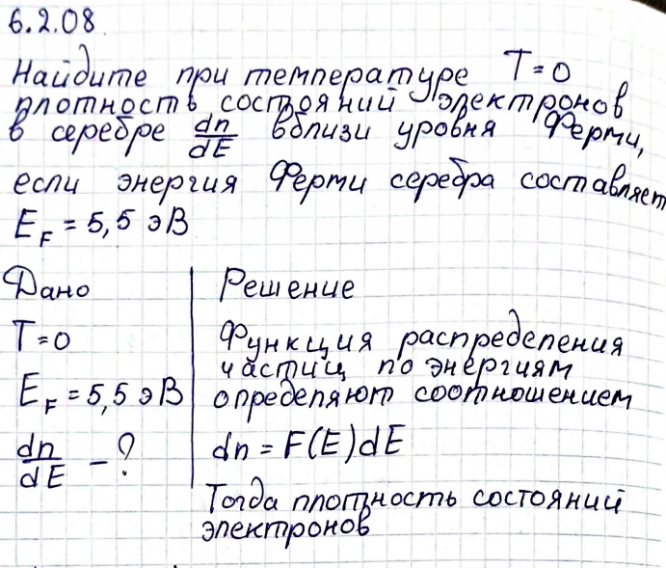 6.2.08.
Найдите при температуре T=0
плотность состояний электронов
в серебре dn/dE вблизи уровня Ферми,
если энергия Ферми серебра составляет
E_F = 5,5 эВ
Дано
T=0
E_F = 5,5 эВ
dn/dE - ?
Решение
Функция распределения
частиц по энергиям
определяют соотношением
dn = F(E)dE
Тогда плотность состояний
электронов